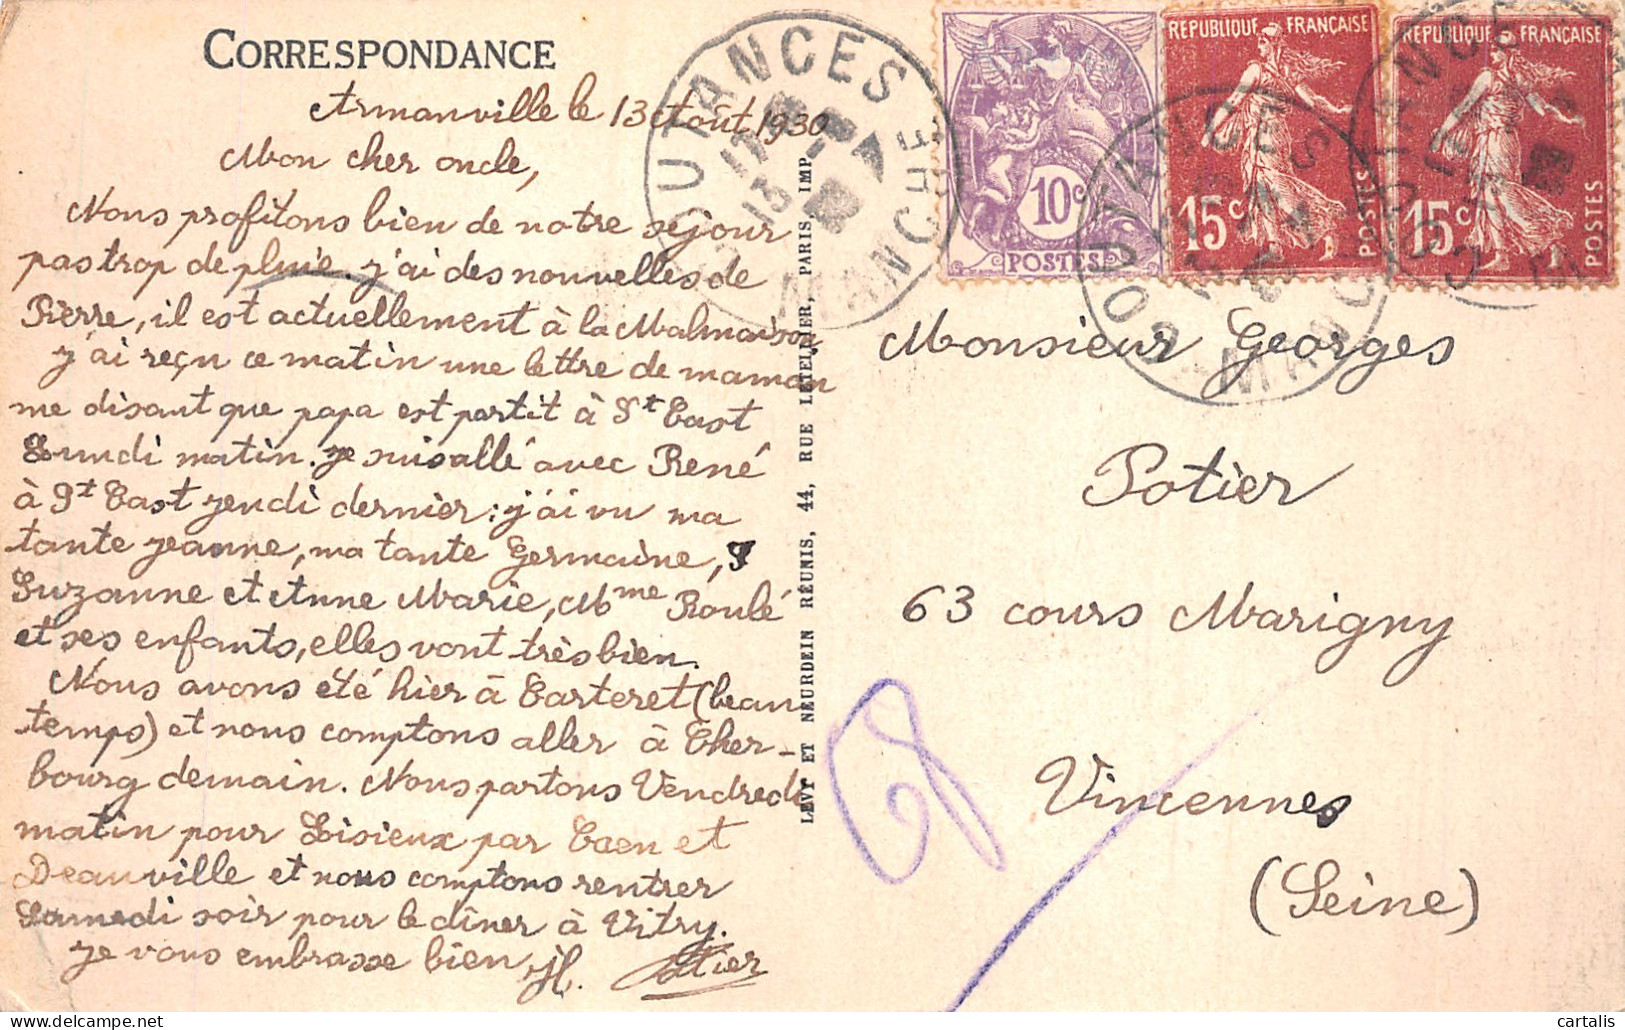 CORRESPONDANCE
Armanville le 13 Août 1930
Mon cher oncle,
Nous profitons bien de notre séjour
pas trop de pluie. j'ai des nouvelles de
Pierre, il est actuellement à la Malmaison
j'ai reçu ce matin une lettre de maman
me disant que papa est partit à St Cast
Lundi matin. je suis allé avec René
à St Cast jeudi dernier: j'ai vu ma
tante jeanne, ma tante Germaine,
Suzanne et Anne Marie, Mme Roulé
et ses enfants, elles vont très bien.
Nous avons été hier à Carteret (beau
temps) et nous comptons aller à Cher-
bourg demain. Nous partons Vendredi
matin pour Lisieux par Caen et
Deauville et nous comptons rentrer
Samedi soir pour le dîner à Vitry.
je vous embrasse bien, H. Potier
LEVY ET NEURDEIN RÉUNIS, 44, RUE LETELLIER, PARIS, IMP.
COUTANCES
17
13
MANCHE
10c
POSTES
RÉPUBLIQUE FRANÇAISE
15c
POSTES
RÉPUBLIQUE FRANÇAISE
15c
POSTES
COUTANCES
MANCHE
Monsieur Georges
Potier
63 cours Marigny
Vincennes
(Seine)
cartalis
www.delcampe.net